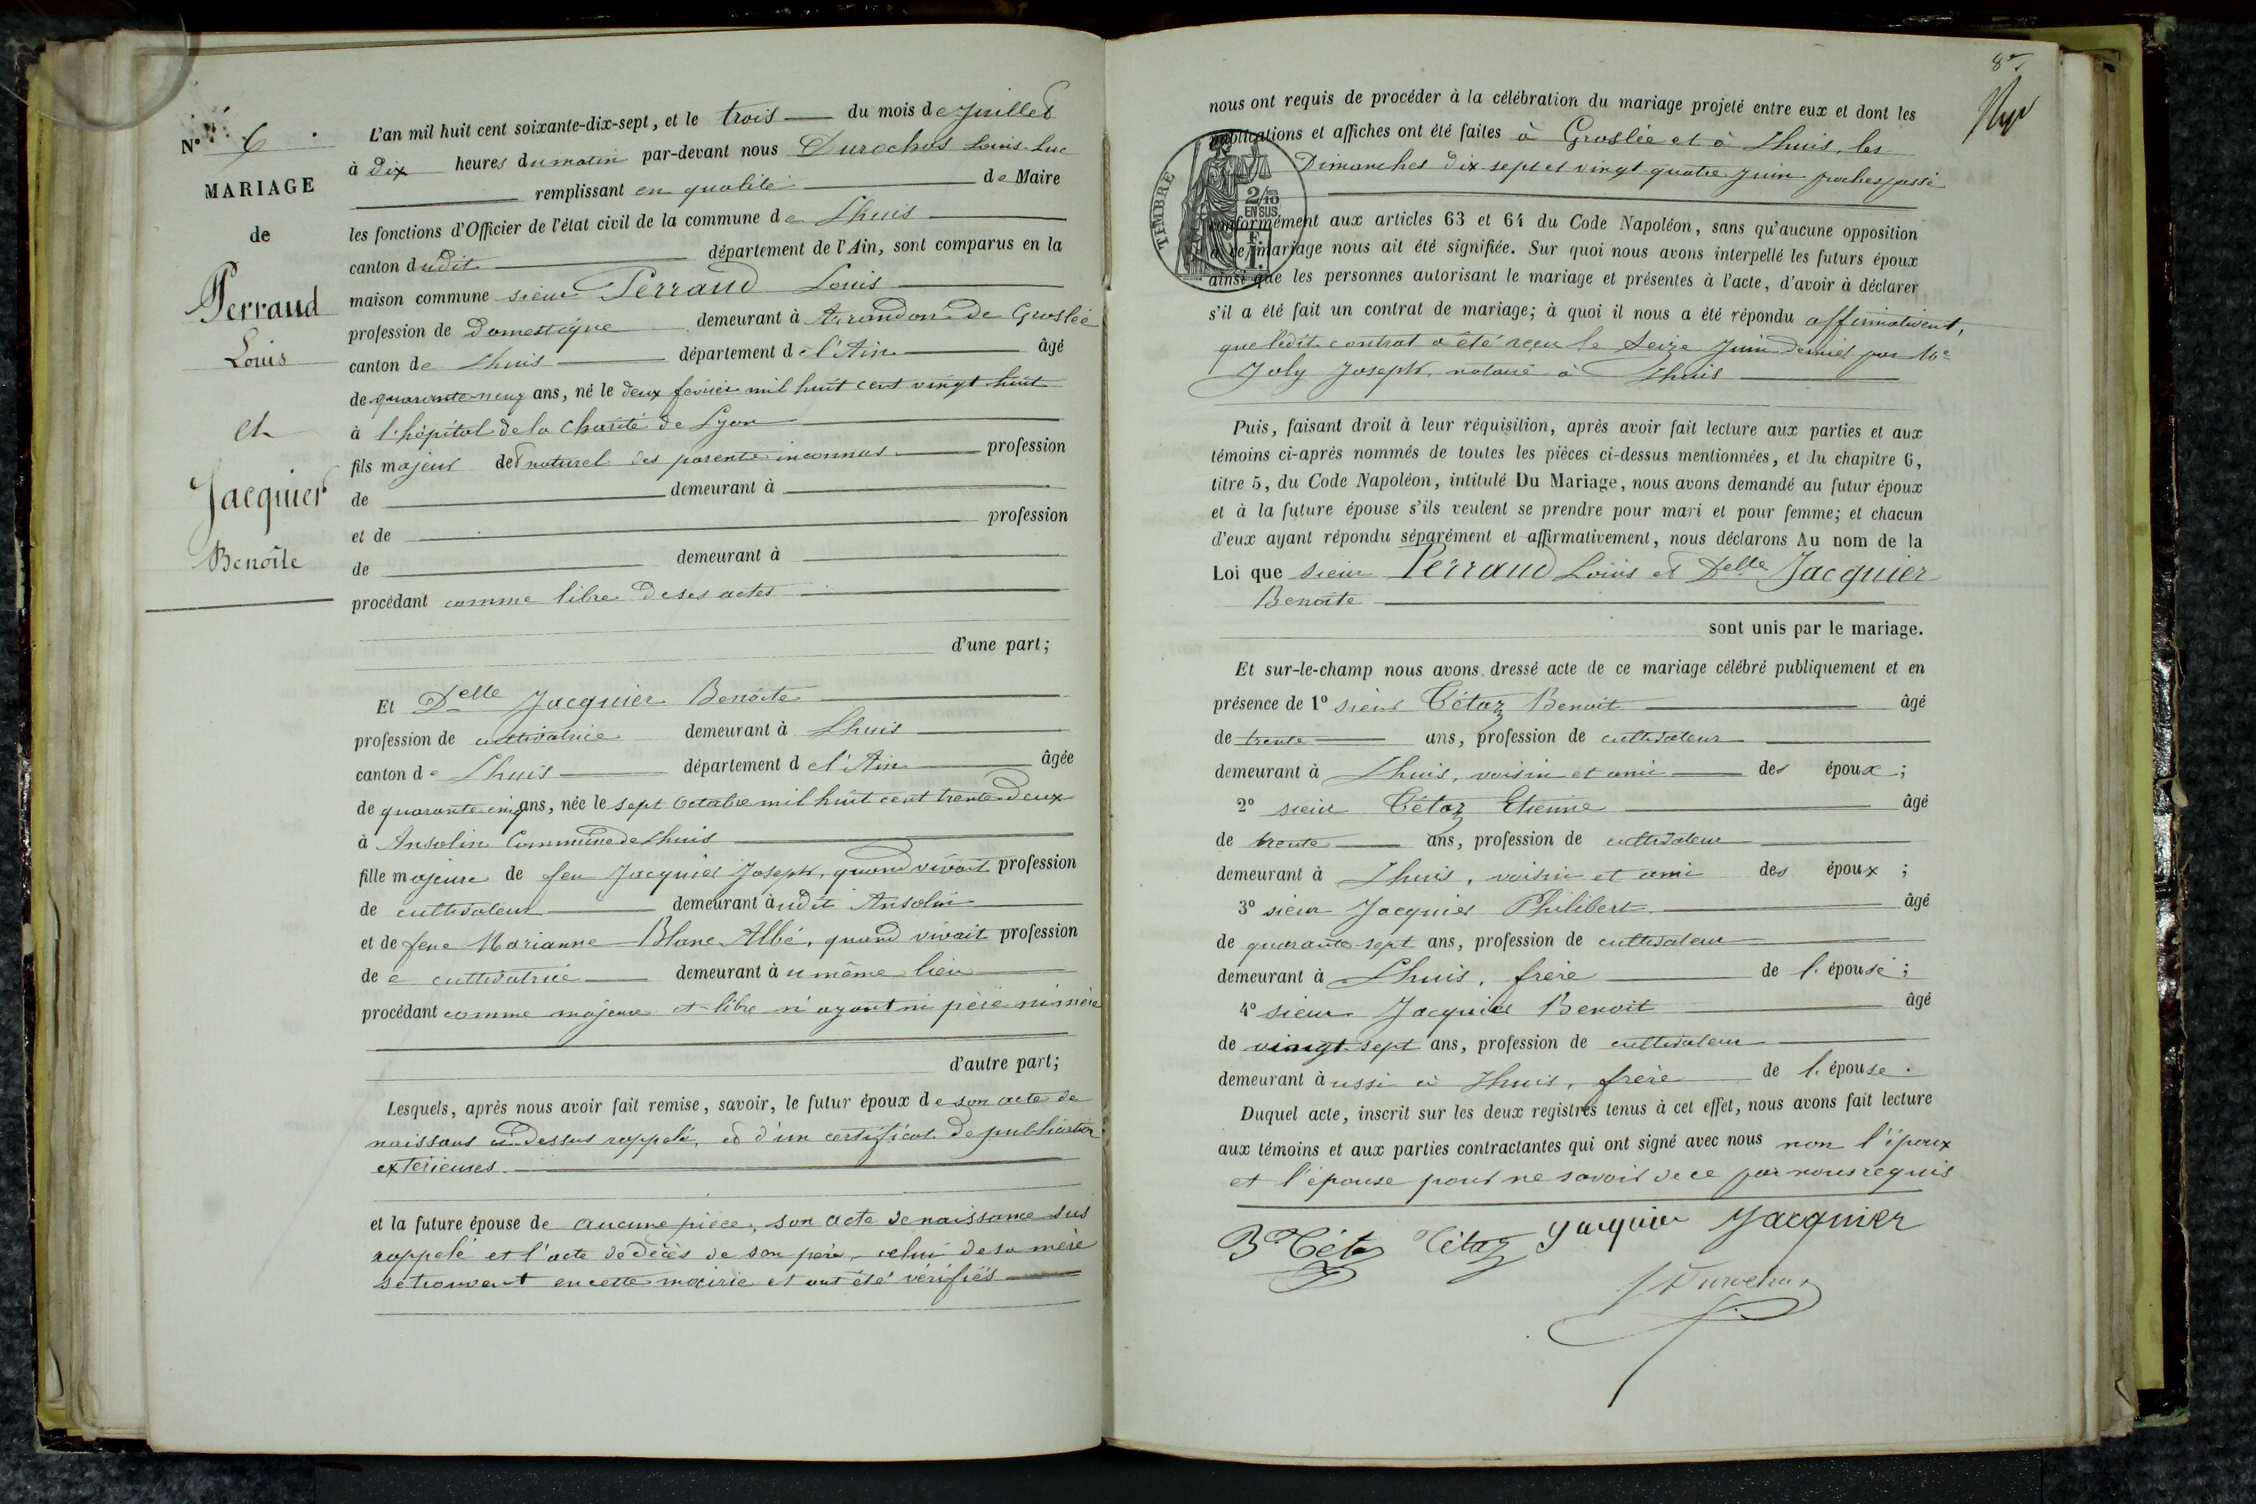 N° 6
MARIAGE
de
Perraud
Louis
et
Jacquier
Benoîte
L'an mil huit cent soixante-dix-sept, et le trois du mois de Juillet
à dix heures du matin par-devant nous Durochas Louis-Luc
remplissant en qualité de Maire
les fonctions d'Officier de l'état civil de la commune de Lhuis
canton dudit département de l'Ain, sont comparus en la
maison commune sieur Perraud Louis
profession de Domestique demeurant à Arrandon de Groslée
canton de Lhuis département de l'Ain âgé
de quarante-neuf ans, né le deux février mil huit cent vingt huit
à l'hôpital de la Charité de Lyon
fils majeur et naturel des parents inconnus profession
de demeurant à
et de profession
de demeurant à
procédant comme libre de ses actes
d'une part;
Et Delle Jacquier Benoîte
profession de cultivatrice demeurant à Lhuis
canton de Lhuis département de l'Ain âgée
de quarante cinq ans, née le sept Octobre mil huit cent trente deux
à Ansolin Commune de Lhuis
fille majeure de feu Jacquier Joseph, quand vivait profession
de cultivateur demeurant audit Ansolin
et de feue Marianne Blanc Albé, quand vivait profession
de cultivatrice demeurant au même lieu
procédant comme majeure et libre n'ayant ni père ni mère
d'autre part;
Lesquels, après nous avoir fait remise, savoir, le futur époux de son acte de
naissance ci-dessus rappelé, et d'un certificat de publication
extérieures
et la future épouse de aucune pièce, son acte de naissance sus
rappelé et l'acte de décès de son père, celui de sa mère
se trouvent en cette mairie et ont été vérifiés
nous ont requis de procéder à la célébration du mariage projeté entre eux et dont les
publications et affiches ont été faites à Groslée et à Lhuis, les
Dimanches dix-sept et vingt quatre Juin proches passé
TIMBRE
2/10
EN SUS
conformément aux articles 63 et 64 du Code Napoléon, sans qu'aucune opposition
à ce mariage nous ait été signifiée. Sur quoi nous avons interpellé les futurs époux
ainsi que les personnes autorisant le mariage et présentes à l'acte, d'avoir à déclarer
s'il a été fait un contrat de mariage; à quoi il nous a été répondu affirmativent,
que ledit contrat a été reçu le Seize Juin dernier par Me
Joly Joseph, notaire à Lhuis
Puis, faisant droit à leur réquisition, après avoir fait lecture aux parties et aux
témoins ci-après nommés de toutes les pièces ci-dessus mentionnées, et du chapitre 6,
titre 5, du Code Napoléon, intitulé Du Mariage, nous avons demandé au futur époux
et à la future épouse s'ils veulent se prendre pour mari et pour femme; et chacun
d'eux ayant répondu séparément et affirmativement, nous déclarons Au nom de la
Loi que sieur Perraud Louis et Delle Jacquier
Benoîte
sont unis par le mariage.
Et sur-le-champ nous avons dressé acte de ce mariage célébré publiquement et en
présence de 1° sieur Cétaz Benoit âgé
de trente ans, profession de cultivateur
demeurant à Lhuis, voisin et ami des époux;
2° sieur Cétaz Etienne âgé
de trente ans, profession de cultivateur
demeurant à Lhuis, voisin et ami des époux;
3° sieur Jacquier Philibert âgé
de quarante-sept ans, profession de cultivateur
demeurant à Lhuis, frère de l'épouse;
4° sieur Jacquier Benoit âgé
de vingt-sept ans, profession de cultivateur
demeurant aussi à Lhuis, frère de l'épouse.
Duquel acte, inscrit sur les deux registres tenus à cet effet, nous avons fait lecture
aux témoins et aux parties contractantes qui ont signé avec nous non l'époux
et l'épouse pour ne savoir de ce par nous requis
Bt Cétaz Cétaz Jacquier Jacquier
Durochas